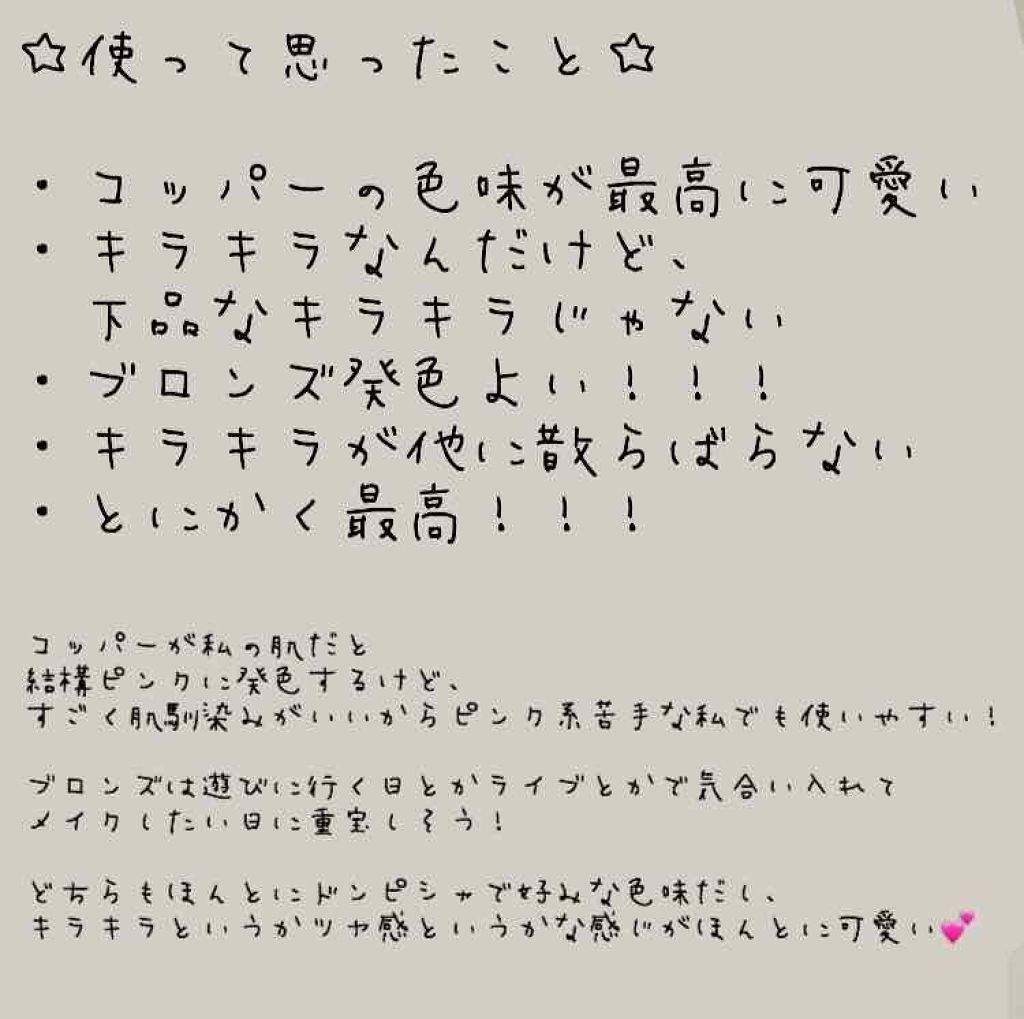 ☆使って思ったこと☆
・コッパーの色味が最高に可愛い
・キラキラなんだけど、
下品なキラキラじゃない
・ブロンズ発色よい！！！
・キラキラが他に散らばらない
・とにかく最高！！！
コッパーが私の肌だと
結構ピンクに発色するけど、
すごく肌馴染みがいいからピンク系苦手な私でも使いやすい！
ブロンズは遊びに行く日とかライブとかで気合い入れて
メイクしたい日に重宝しそう！
どちらもほんとにドンピシャで好みな色味だし、
キラキラというかツヤ感というかな感じがほんとに可愛い💕